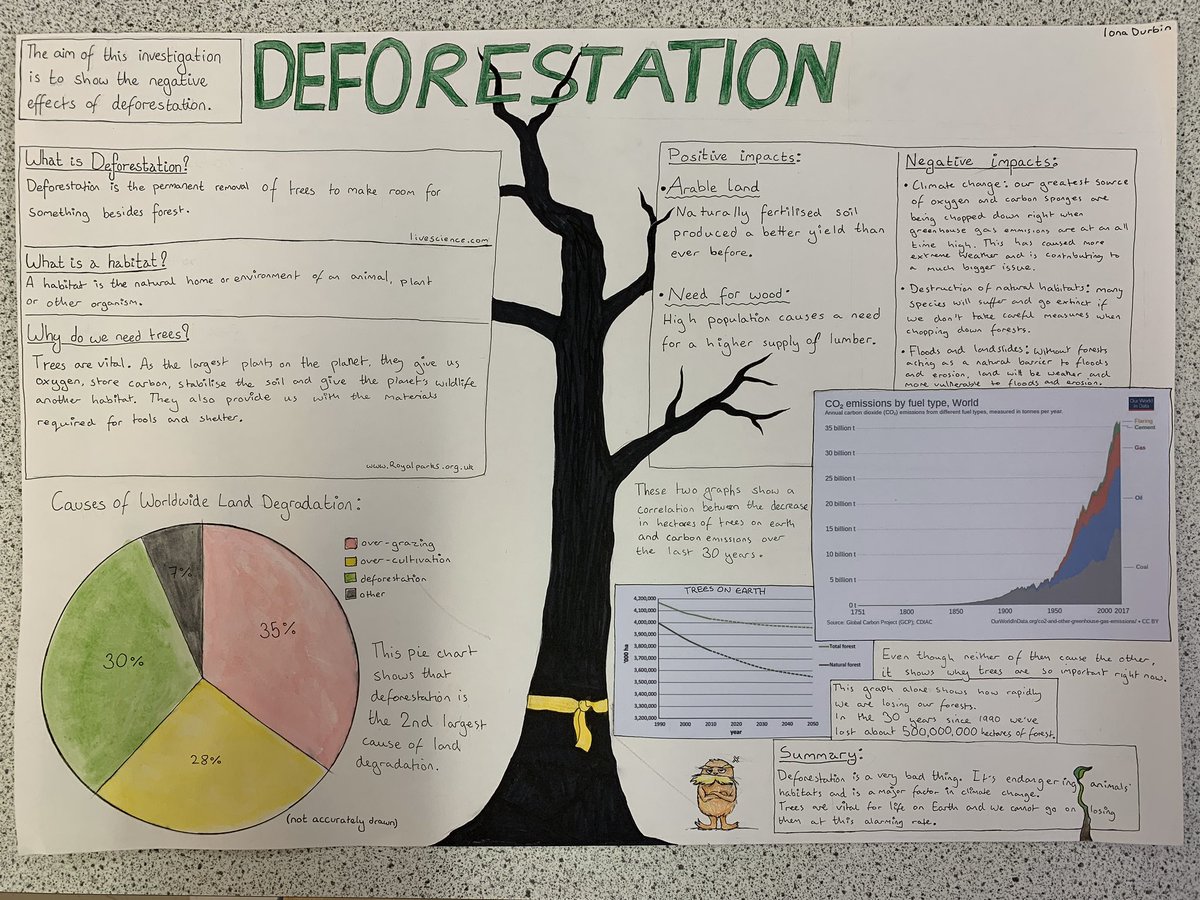 Iona Durbin
The aim of this investigation
is to show the negative
effects of deforestation.
DEFORESTATION
What is Deforestation?
Deforestation is the permanent removal of trees to make room for
something besides forest.
livescience.com
What is a habitat?
A habitat is the natural home or environment of an animal, plant
or other organism.
Why do we need trees?
Trees are vital. As the largest plants on the planet, they give us
oxygen, store carbon, stabilise the soil and give the planet's wildlife
another habitat. They also provide us with the materials
required for tools and shelter.
www.Royalparks.org.uk
Positive impacts:
• Arable land
Naturally fertilised soil
produced a better yield than
ever before.
• Need for wood:
High population causes a need
for a higher supply of lumber.
Negative impacts:
• Climate change: our greatest source
of oxygen and carbon sponges are
being chopped down right when
greenhouse gas emmisions are at an all
time high. This has caused more
extreme weather and is contributing to
a much bigger issue.
• Destruction of natural habitats: many
species will suffer and go extinct if
we don't take careful measures when
chopping down forests.
• Floods and landslides: Without forests
acting as a natural barrier to floods
and erosion, land will be weaker and
more vulnerable to floods and erosion.
Causes of Worldwide Land Degradation:
over-grazing
over-cultivation
deforestation
other
7%
35%
30%
28%
(not accurately drawn)
This pie chart
shows that
deforestation is
the 2nd largest
cause of land
degradation.
These two graphs show a
correlation between the decrease
in hectares of trees on earth
and carbon emissions over
the last 30 years.
CO₂ emissions by fuel type, World
Annual carbon dioxide (CO₂) emissions from different fuel types, measured in tonnes per year.
Our World
in Data
35 billion t
30 billion t
25 billion t
20 billion t
15 billion t
10 billion t
5 billion t
0 t
1751 1800 1850 1900 1950 2000 2017
Flaring
Cement
Gas
Oil
Coal
Source: Global Carbon Project (GCP); CDIAC
OurWorldInData.org/co2-and-other-greenhouse-gas-emissions/ • CC BY
TREES ON EARTH
'000 ha
4,200,000
4,100,000
4,000,000
3,900,000
3,800,000
3,700,000
3,600,000
3,500,000
3,400,000
3,300,000
3,200,000
1990 2000 2010 2020 2030 2040 2050
year
Total forest
Natural forest
Even though neither of them cause the other,
it shows why trees are so important right now.
This graph alone shows how rapidly
we are losing our forests.
In the 30 years since 1990 we've
lost about 500,000,000 hectares of forest.
Summary:
Deforestation is a very bad thing. It's endangering animals'
habitats and is a major factor in climate change.
Trees are vital for life on Earth and we cannot go on losing
them at this alarming rate.